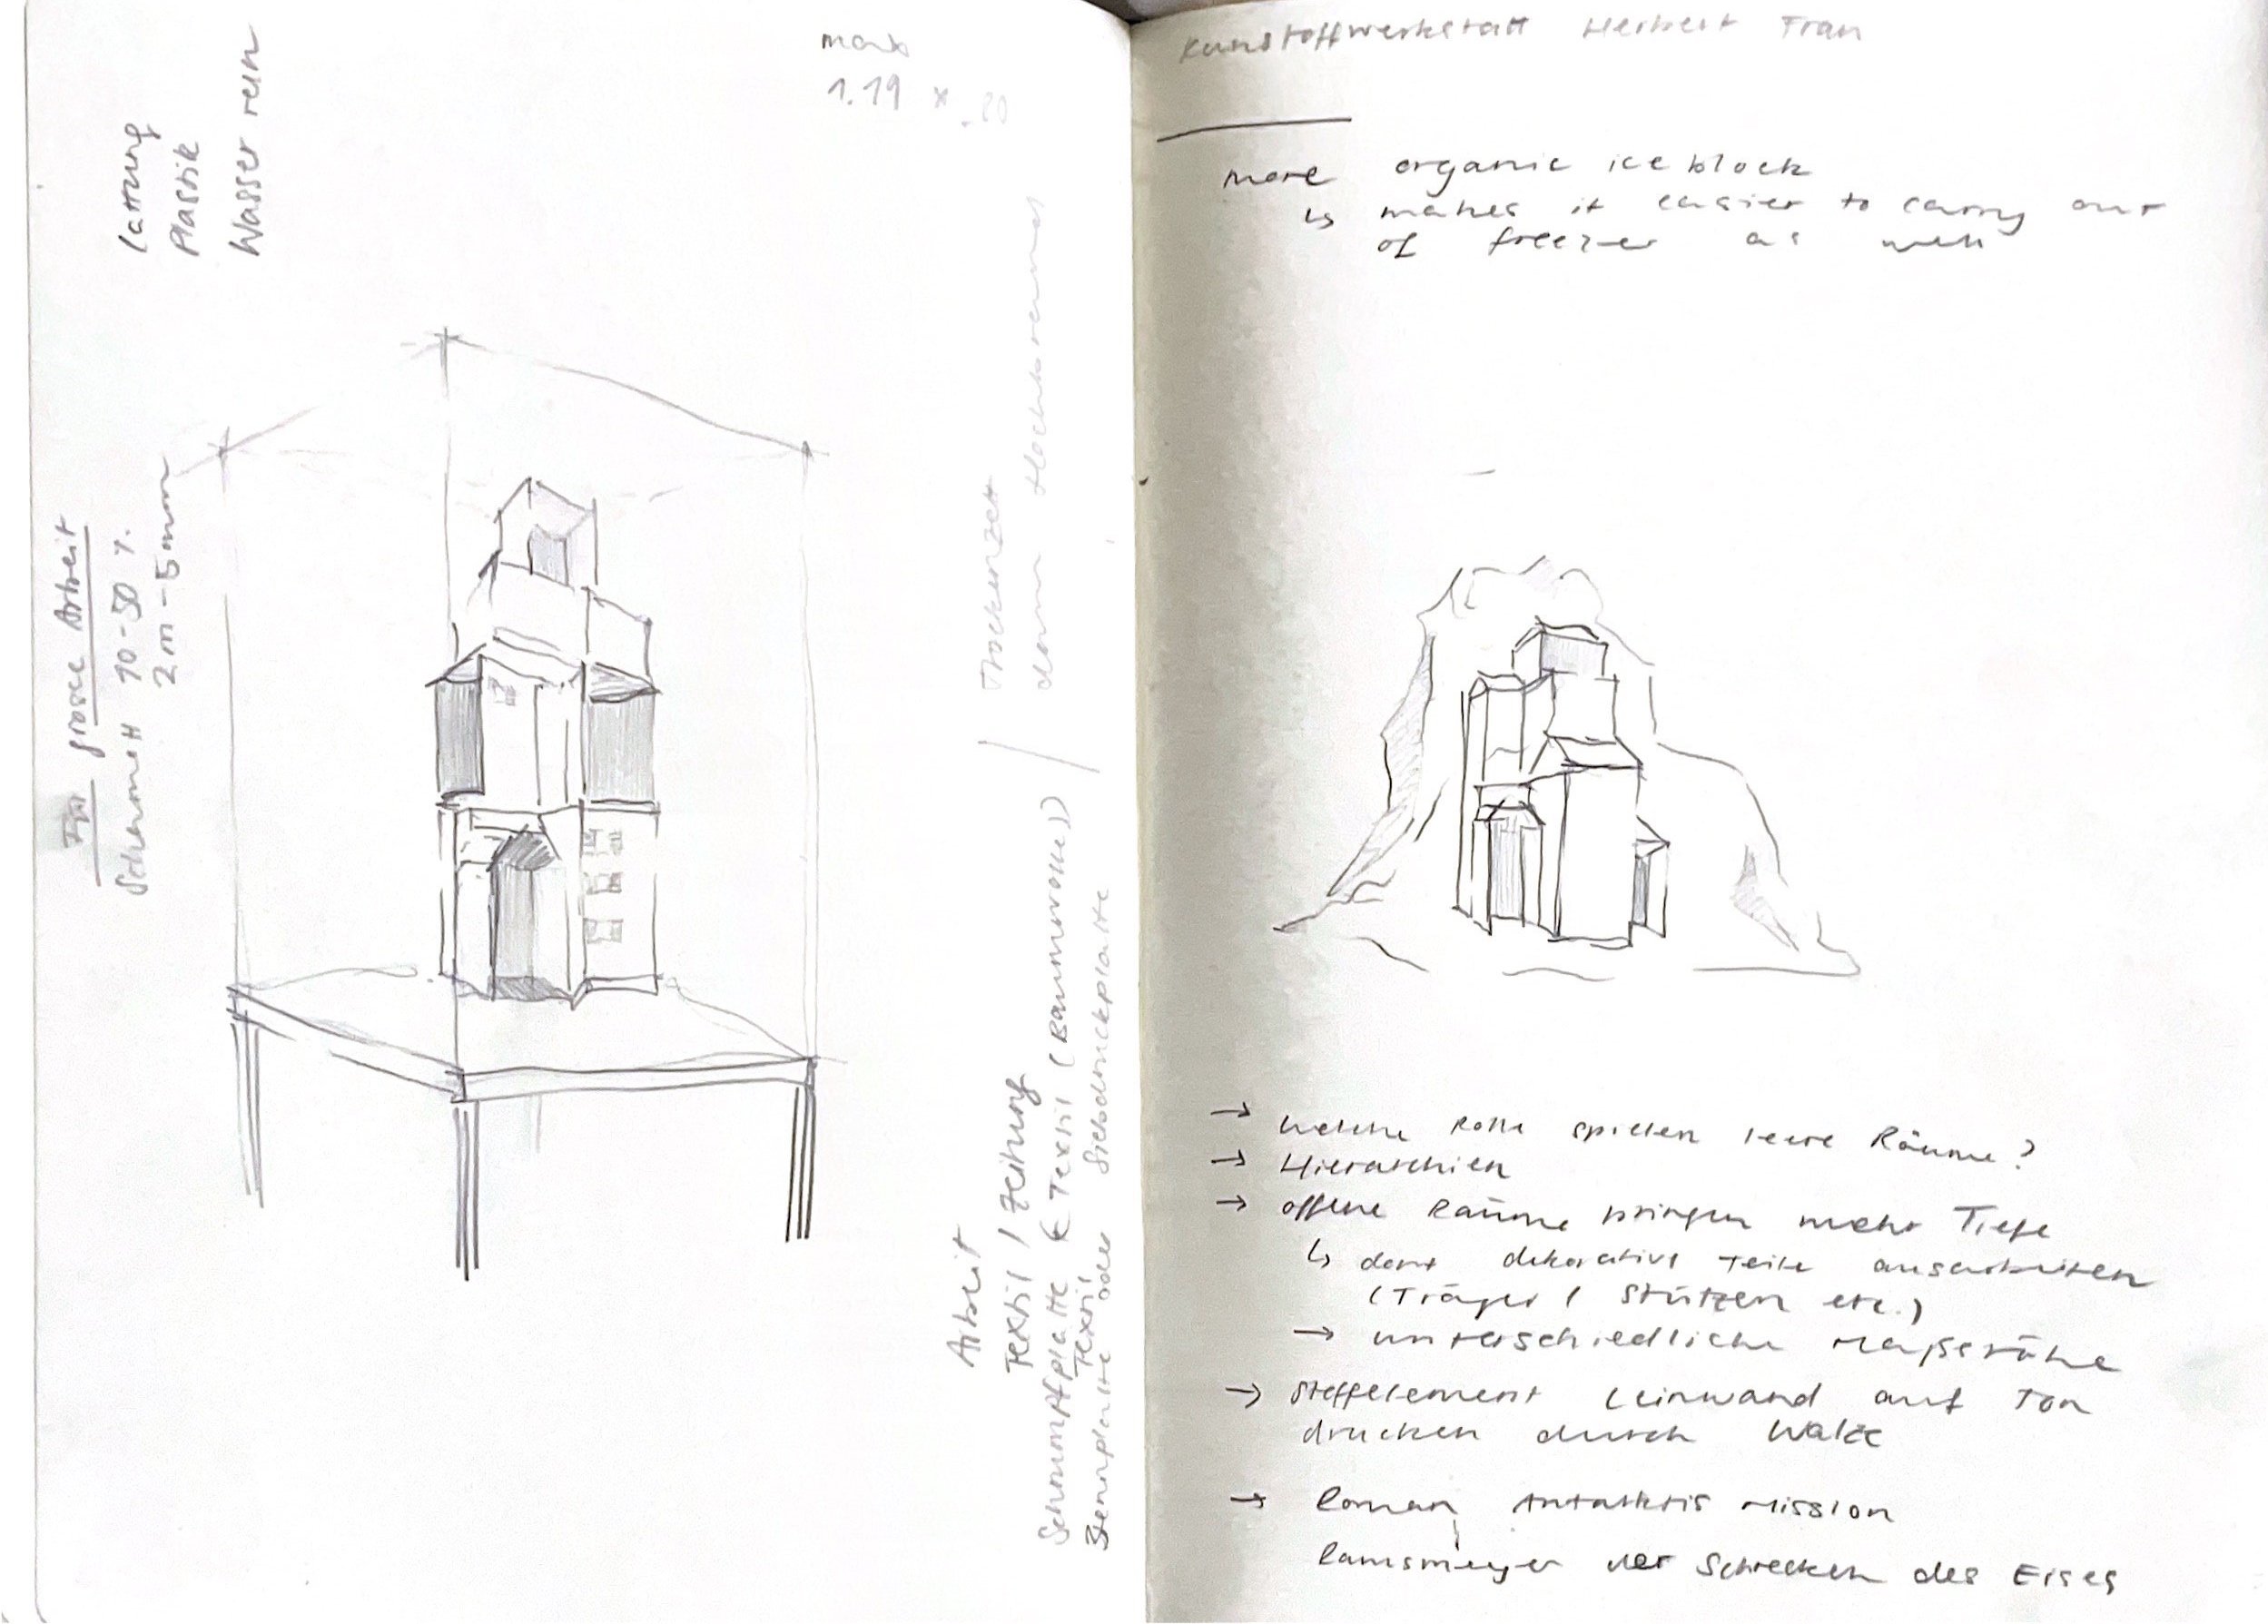 Lattung
Plastik
Wasser rein
max
1.19 x .20
Für grosse Arbeit
Schamott 10-50 %
2 m - 5 mm
Trockenzeit
dann Hochbrennen
Arbeit
Textil / Zeitung
Schrumpfplatte ← Textil (Baumwolle))
Textil
Brennplatte oder Siebdruckplatte
Kunstoffwerkstatt Herbert Tran
more organic ice block
↳ makes it easier to carry out
of freezer as well
→ Welche Rolle spielen leere Räume?
→ Hierarchien
→ offene Räume bringen mehr Tiefe
↳ dort dekorative Teile ausarbeiten
(Träger / Stützen etc.)
→ unterschiedliche Maßstäbe
→ Stoffelement Leinwand auf Ton
drucken durch Walze
→ Roman Antarktis Mission
der Schrecken des Eises